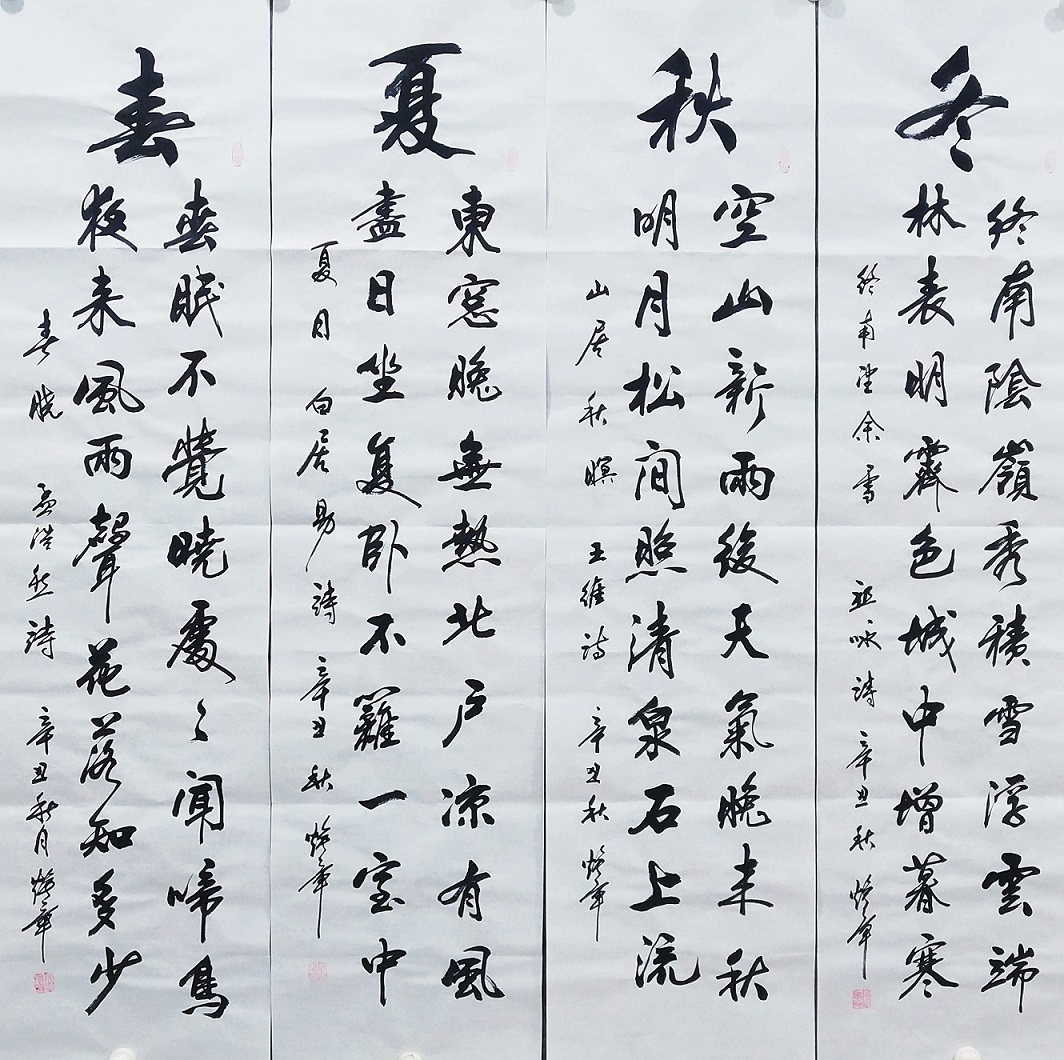 春
春眠不覺曉處々聞啼鳥
夜来風雨聲花落知多少
春曉 孟浩然詩 辛丑秋月
夏
東窓晚無熱北戶凉有風
盡日坐复卧不離一室中
夏日 白居易詩 辛丑秋
秋
空山新雨後天氣晚来秋
明月松间照清泉石上流
山居秋暝 王維詩 辛丑秋
冬
終南陰嶺秀積雪浮雲端
林表明霽色城中增暮寒
終南望余雪 祖咏詩 辛丑秋